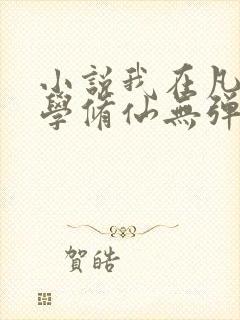 小説我在凡
學脩仙無彈
賀皓